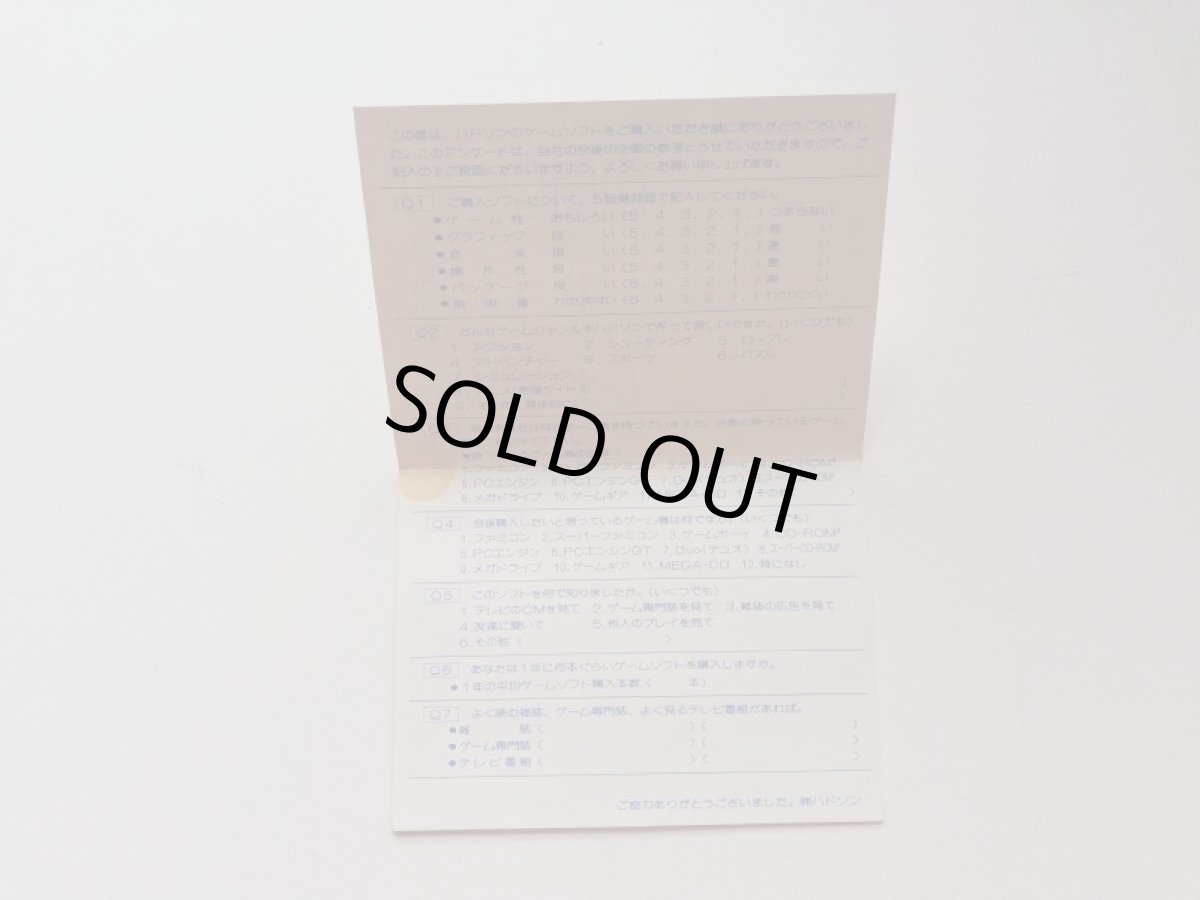 この度は、ハドソンのゲームソフトをご購入いただき誠にありがとうございまし
た。このアンケートは、当社の今後の企画の参考とさせていただきますので、ご
記入の上ご投函くださいますよう、よろしくお願い申し上げます。
Q1 ご購入ソフトについて、5段階評価で記入してください。
●ゲーム性 おもしろい(5．4．3．2．1．)つまらない
●グラフィック 良い(5．4．3．2．1．)悪い
●音楽 良い(5．4．3．2．1．)悪い
●操作性 良い(5．4．3．2．1．)悪い
●パッケージ 良い(5．4．3．2．1．)悪い
●説明書 わかりやすい(5．4．3．2．1．)わかりにくい
Q2 どんなゲームジャンルをハドソンで作って欲しいですか。(いくつでも)
1．アクション 2．シューティング 3．ロープレ
4．アドベンチャー 5．スポーツ 6．パズル
シミュレーション
タイトル )
)
持っていますか。 持っているゲーム
1.ファミコン CD-ROM²
5.PCエンジン 6.PCエンジン
9.メガドライブ 10.ゲームギア その他 )
SOLD OUT
Q4 今後購入したいと思っているゲーム機は何ですか。(いくつでも)
1.ファミコン 2.スーパーファミコン 3.ゲームボーイ 4.CD-ROM²
5.PCエンジン 6.PCエンジンGT 7.Duo(デュオ) 8.スーパーCD-ROM²
9.メガドライブ 10.ゲームギア 11.MEGA-CD 12.特になし
Q5 このソフトを何で知りましたか。(いくつでも)
1.テレビのCMを見て 2.ゲーム専門誌を見て 3.雑誌の広告を見て
4.友達に聞いて 5.他人のプレイを見て
6.その他( )
Q6 あなたは1年に何本ぐらいゲームソフトを購入しますか。
●1年の平均ゲームソフト購入本数( 本)
Q7 よく読む雑誌、ゲーム専門誌、よく見るテレビ番組があれば。
●雑誌( )( )
●ゲーム専門誌( )( )
●テレビ番組( )( )
ご協力ありがとうございました。㈱ハドソン